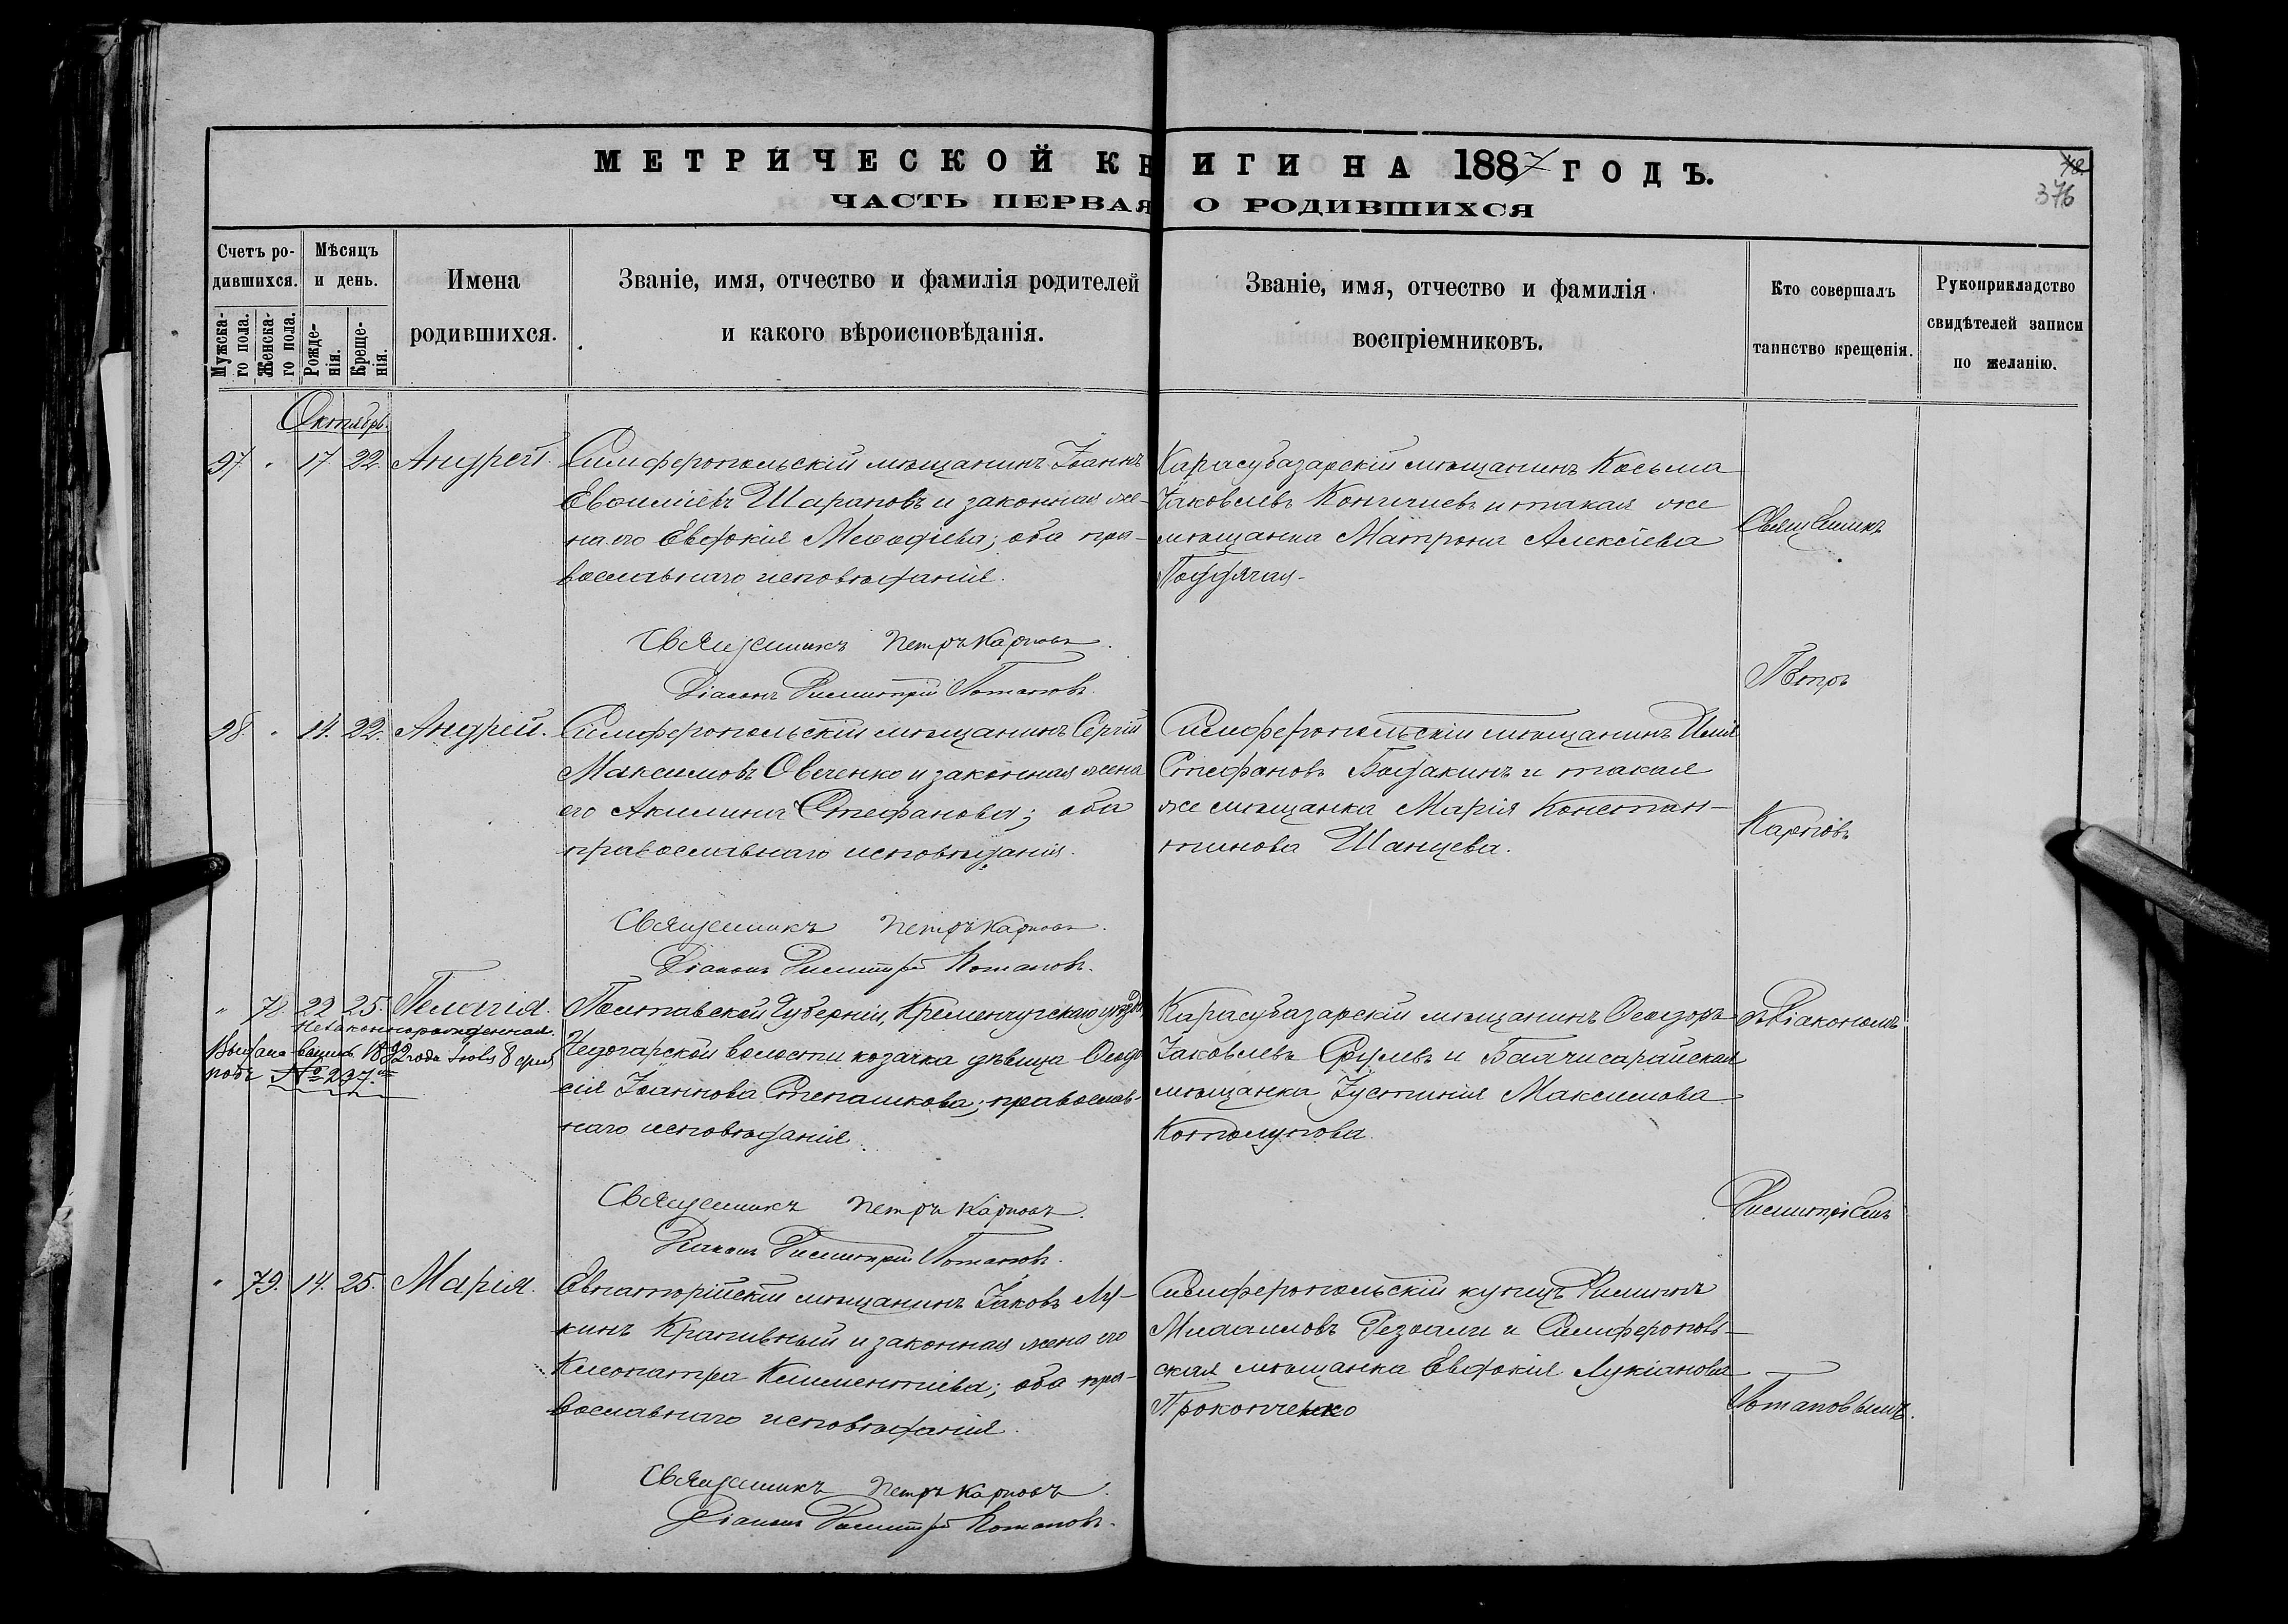 МЕТРИЧЕСКОЙ КНИГИ НА 1887 ГОДЪ.
ЧАСТЬ ПЕРВАЯ О РОДИВШИХСЯ
376
Счетъ родившихся.
Мужскаго пола.
Женскаго пола.
Мѣсяцъ и день.
Рожденія.
Крещенія.
Имена родившихся.
Званіе, имя, отчество и фамилія родителей
и какого вѣроисповѣданія.
Званіе, имя, отчество и фамилія
воспріемниковъ.
Кто совершалъ
таинство крещенія.
Рукоприкладство
свидѣтелей записи
по желанію.
Октябрь.
97 " 17 22 Андрей.
Симферопольскій мѣщанинъ Іоаннъ
Шараповъ и законная же-
на его Евдокія Меѳодіева; оба пра-
вославнаго исповѣданія.
Карасубазарскій мѣщанинъ Косьма
Іаковлевъ и такая же
мѣщанка Матрона Алексіева
Священникъ Петръ Карповъ.
Діаконъ Димитрій Потаповъ.
Священникъ
Петръ
Карповъ
98 " 14. 22. Андрей.
Симферопольскій мѣщанинъ Сергій
Максимовъ Овченко и законная жена
его Акилина Стефанова; оба
православнаго исповѣданія.
Симферопольскій мѣщанинъ Илія
Стефановъ и такая
же мѣщанка Марія Констан-
тинова Шанцева.
Священникъ Петръ Карповъ.
Діаконъ Димитрій Потаповъ.
" 78. 22 25. Пелагія.
Незаконнорожденная.
1892 года
№ 237.
Полтавской Губерніи, Кременчугскаго уѣзда,
волости козачка дѣвица Ѳеодо-
сія Іоаннова Степашкова; православ-
наго исповѣданія.
Карасубазарскій мѣщанинъ Ѳеодоръ
Іаковлевъ и Бахчисарайская
мѣщанка Іустинія Максимова
Священникъ Петръ Карповъ.
Діаконъ Димитрій Потаповъ.
Діакономъ
Димитріемъ
Потаповымъ.
" 79. 14. 25. Марія.
Евпаторійскій мѣщанинъ Іаковъ Лу-
кинъ Крапивный и законная жена его
Клеопатра Климентіева; оба пра-
вославнаго исповѣданія.
Симферопольскій купецъ
и Симферополь-
ская мѣщанка Евдокія Лукіанова
Прокопченко
Священникъ Петръ Карповъ.
Діаконъ Димитрій Потаповъ.